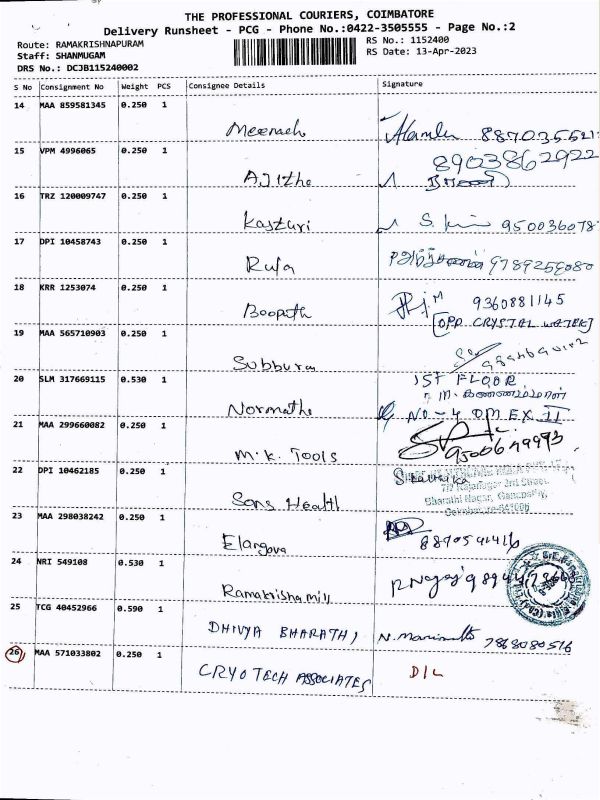 THE PROFESSIONAL COURIERS, COIMBATORE
Delivery Runsheet - PCG - Phone No.:0422-3505555 - Page No.:2
Route: RAMAKRISHNAPURAM
RS No.: 1152400
Staff: SHANMUGAM
RS Date: 13-Apr-2023
DRS No.: DCJB115240002
S No Consignment No Weight PCS Consignee Details Signature
14 MAA 859581345 0.250 1
8903862922
15 VPM 4996065 0.250 1
AJitha
16 TRZ 120009747 0.250 1
Kasturi
17 DPI 10458743 0.250 1
Ruja 9789256080
18 KRR 1253074 0.250 1
9360881145
Boopath [OPP CRYSTAL WATER]
19 MAA 565710903 0.250 1
Subbura
20 SLM 317669115 0.530 1
1ST FLOOR
Normatha NO-4 DM EX II
21 MAA 299660082 0.250 1
M.K. Tools
22 DPI 10462185 0.250 1
Sons Health
Bharathi Nagar, Ganapathy,
Coimbatore-641006
23 MAA 298038242 0.250 1
Elangova
24 NRI 549108 0.530 1
Ramakrishamill
25 TCG 40452966 0.590 1
DHIVYA BHARATHI 7868080516
26 MAA 571033802 0.250 1
CRYOTECH ASSOCIATES D/L